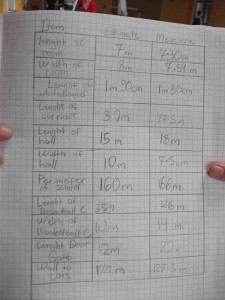 Item Estimate Measure
lenght of room 7m 7.90m
Width of room 3m 7.51m
Lenght of whiteboard 1m 90cm 1m 80cm
Lenght of corridor 30m 27.5m
Lenght of hall 15m 18m
Width of hall 10m 9.5m
Permeter of school 160m 166m
Lenght of Basketball C 25m 26m
Width of Basketball C 10m 14m
Lenght Door Gate 12m
Wall to cars 120m 127.5m